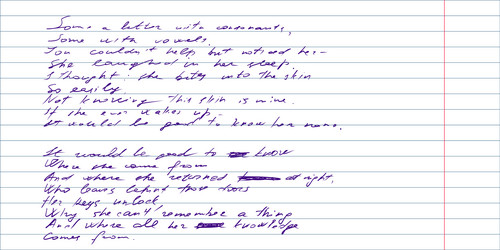 Some a letter with consonants,
Some with vowels.
You couldn't help but noticed her –
She laughed in her sleep.
I thought: she bites into the skin
So easily
Not knowing this skin is mine.
If she ever wakes up –
It would be good to know her name.

It would be good to know
Where she came from
And where she returned at night,
Who leaves behind those doors
Her keys unlock,
Why she can't remember a thing
And where all her knowledge
Comes from.